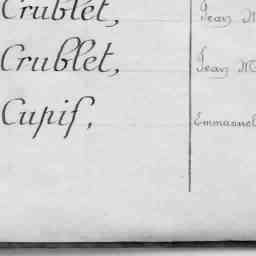 Crublet, Jean M
Crublet, Jean M
Cupif, Emmanuel